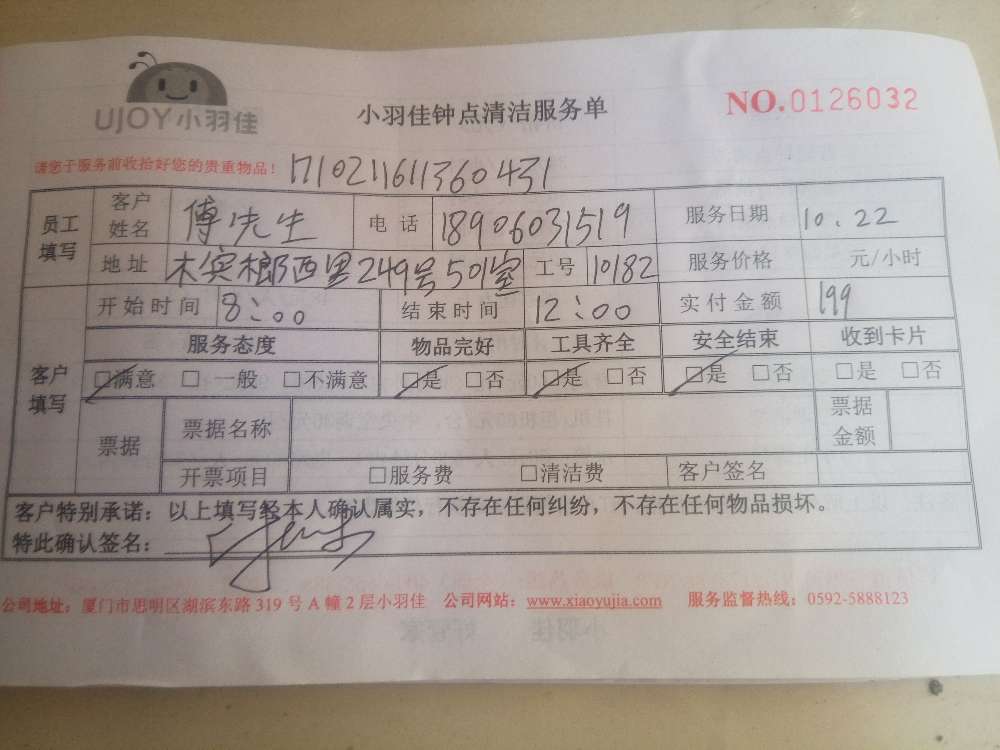 UJOY小羽佳
小羽佳钟点清洁服务单
NO.0126032
请您于服务前收拾好您的贵重物品！
1710211611360431
员工填写 客户姓名 傅先生 电话 18906031519 服务日期 10.22
地址 木宾榔西里249号501室 工号 10182 服务价格 元/小时
客户填写 开始时间 8:00 结束时间 12:00 实付金额 199
服务态度 物品完好 工具齐全 安全结束 收到卡片
☑满意 □一般 □不满意 ☑是 □否 ☑是 □否 ☑是 □否 □是 □否
票据 票据名称 票据金额
开票项目 □服务费 □清洁费 客户签名
客户特别承诺：以上填写经本人确认属实，不存在任何纠纷，不存在任何物品损坏。
特此确认签名：
公司地址：厦门市思明区湖滨东路 319 号 A 幢 2 层小羽佳 公司网站：www.xiaoyujia.com 服务监督热线：0592-5888123